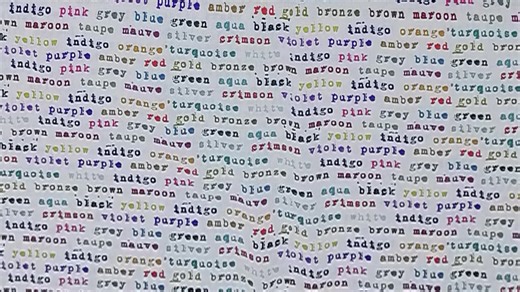 violet purple amber red gold bronze brown maroon taupe
indigo pink grey blue green aqua black yellow indigo orange
maroon taupe mauve silver crimson violet purple amber red gold
yellow indigo orange turquoise white indigo pink grey blue green
violet purple amber red gold bronze brown maroon taupe mauve
indigo pink grey blue green aqua black yellow indigo orange
maroon taupe mauve silver crimson violet purple amber red gold
yellow indigo orange turquoise white indigo pink grey blue green
violet purple amber red gold bronze brown maroon taupe mauve
indigo pink grey blue green aqua black yellow indigo orange
brown maroon taupe mauve silver crimson violet purple amber red gold
yellow indigo orange turquoise white indigo pink grey blue green
violet purple amber red gold bronze brown maroon taupe mauve
turquoise white indigo pink grey blue green aqua black yellow indigo orange
brown maroon taupe mauve silver crimson violet purple amber red
aqua black yellow indigo orange turquoise white indigo pink grey
silver crimson violet purple amber red gold bronze brown maroon taupe
turquoise white indigo pink grey blue green aqua black yellow indigo
brown maroon taupe mauve silver crimson violet purple amber
black yellow indigo orange turquoise white indigo pink grey
violet purple amber red gold bronze brown maroon
indigo pink grey blue green